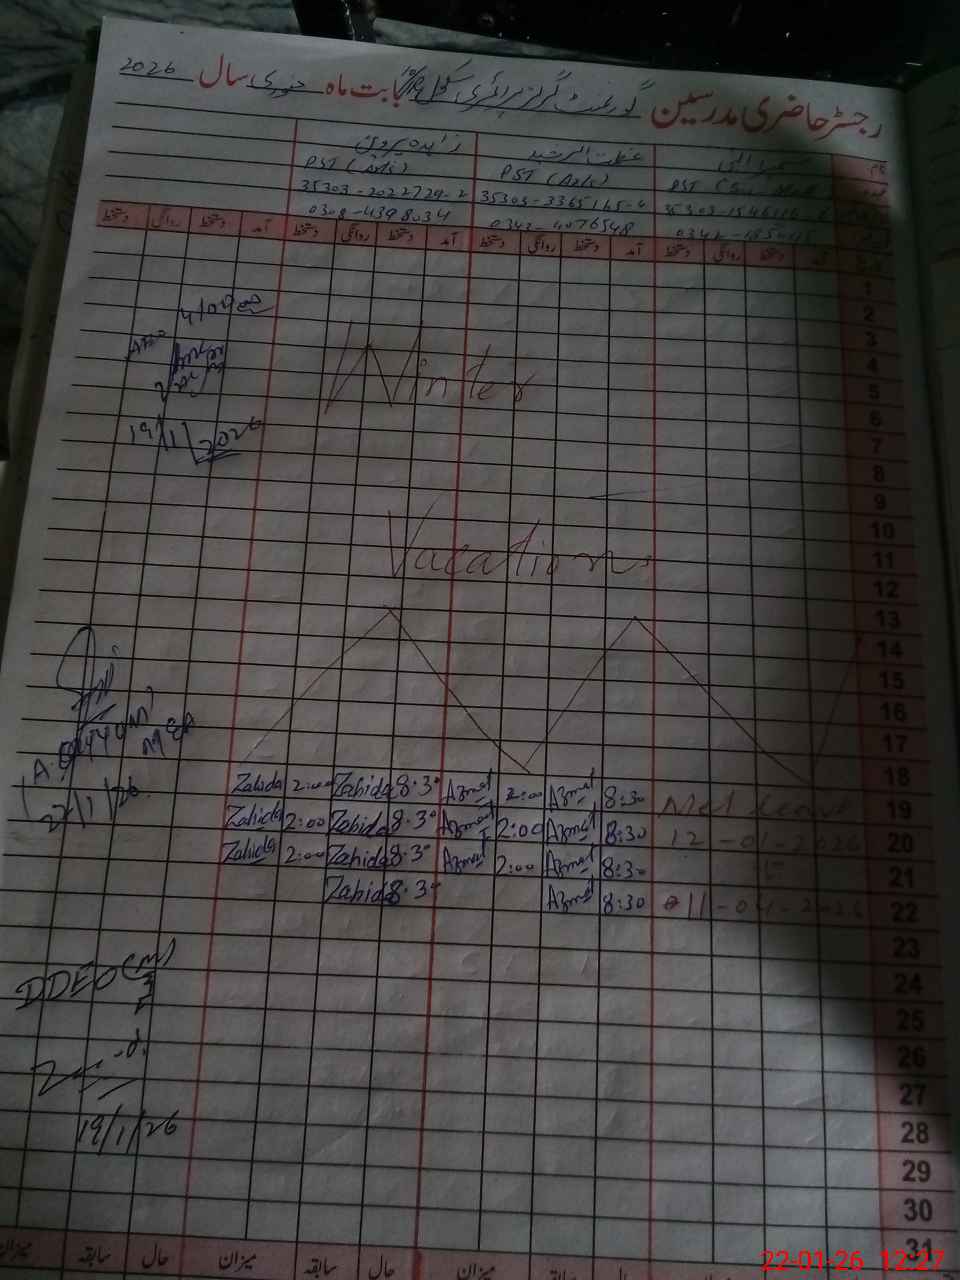 رجسٹر حاضری مدرسین گورنمنٹ گرلز پرائمری سکول بابت ماہ جنوری سال 2026
نام زاہدہ پروین
PST (Arts) PST
35303-3365165-4 35303-2022729-2
0342-4076548 0308-4398034
آمد دستخط روانگی دستخط آمد دستخط روانگی دستخط آمد دستخط روانگی دستخط آمد دستخط روانگی دستخط
1
2
3
Winter
4
5
6
19/1/2026
7
8
9
10
Vacations
11
12
13
14
15
16
A. Qayyum
MEA
17
22/1/26
18
Zahida 2:00 Zahida 8:30 Azmat 2:00 Azmat 8:30 Med Leave 19
Zahida 2:00 Zahida 8:30 Azmat 2:00 Azmat 8:30 12-01-2026 20
Zahida 2:00 Zahida 8:30 Azmat 2:00 Azmat 8:30 to 21
Zahida 8:30 Azmat 8:30 11-04-2026 22
23
DDEO (M)
24
25
26
27
19/1/26
28
29
30
31
حال سابقہ میزان حال سابقہ میزان حال سابقہ میزان
22-01-26 12:27